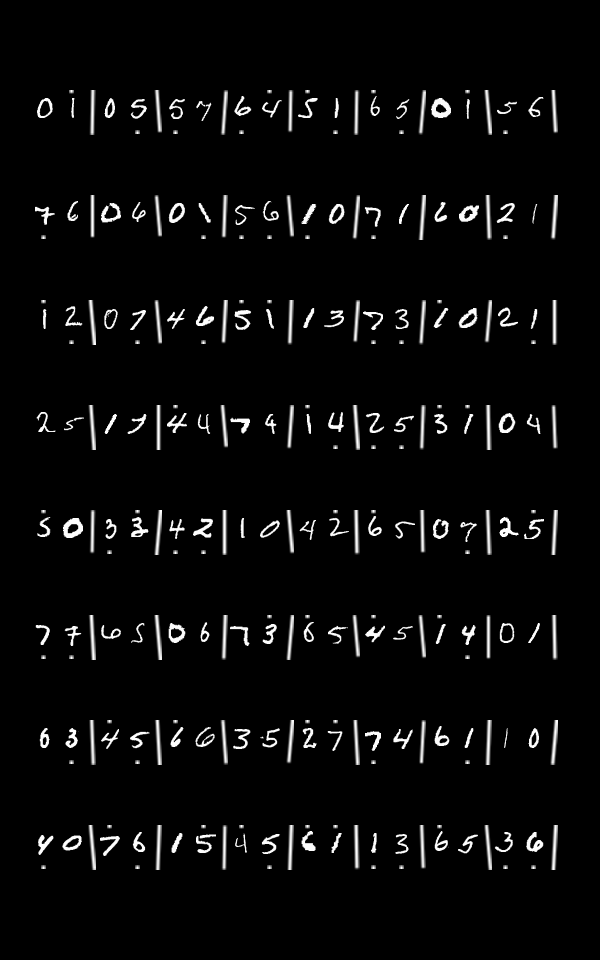 0 1̇ | 0 5̣ | 5̣ 7 | 6 4̇ | 5̇ 1̣ | 6̇ 5̣ | 0 1̇ | 5̣ 6 |
7̣ 6 | 0 6 | 0 1̣ | 5̣ 6̣ | 1̣ 0 | 7̣ 1 | 6 0 | 2̣ 1 |
1̇ 2̣ | 0 7̣ | 4 6̣ | 5̇ 1̇ | 1 3 | 7̣ 3̣ | 1̇ 0 | 2 1̣ |
2 5 | 1 7 | 4̇ 4 | 7 4 | 1̇ 4̣ | 2̣ 5̣ | 3̇ 1̇ | 0 4 |
5̇ 0 | 3̣ 3̇ | 4̣ 2̣ | 1 0 | 4 2̇ | 6̇ 5 | 0 7̣ | 2 5̇ |
7̣ 7̣ | 6 5 | 0 6 | 7 3̇ | 6̇ 5 | 4̇ 5 | 1 4̣ | 0 1 |
6 3̣ | 4̇ 5̣ | 6̇ 6 | 3 5 | 2̇ 7̇ | 7̣ 4 | 6 1̣ | 1 0 |
4̣ 0 | 7̇ 6̣ | 1 5̇ | 4̇ 5̣ | 6̇ 1̇ | 1̣ 3̣ | 6̇ 5 | 3̣ 6̣ |